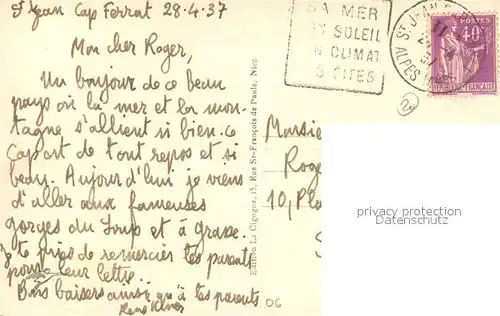 St Jean Cap Ferrat 28-4-37
Mon cher Roger,
Un bonjour de ce beau
pays où la mer et la mon-
tagne s'allient si bien. Ce
Cap est de tout repos et si
beau. Aujourd'hui je viens
d'aller aux fameuses
gorges du Loup et à grasse.
Je te prie de remercier tes parents
pour leur lettre.
Bons baisers ainsi qu'à tes parents
Edition La Cigogne, 15, Rue St-François de Paule, Nice.
SA MER
SOLEIL
CLIMAT
SITES
ST JEAN
ALPES
POSTES
40c
FRANÇAISE
Monsie
Roge
10, Pla
privacy protection
(AnkerADR)
06